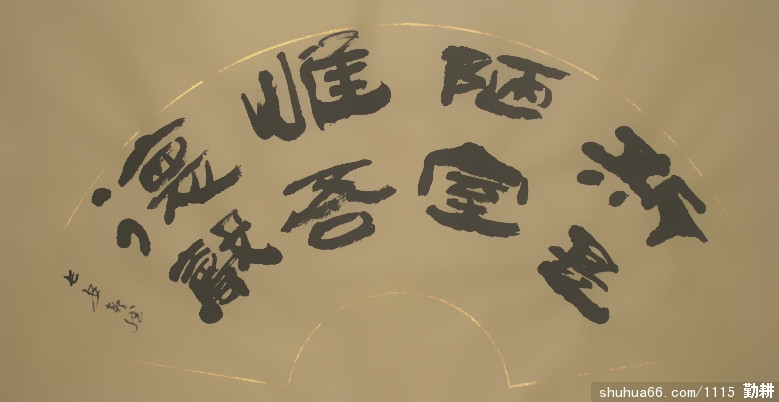 斯是
陋室
惟吾
德馨
shuhua66.com/1115 勤耕